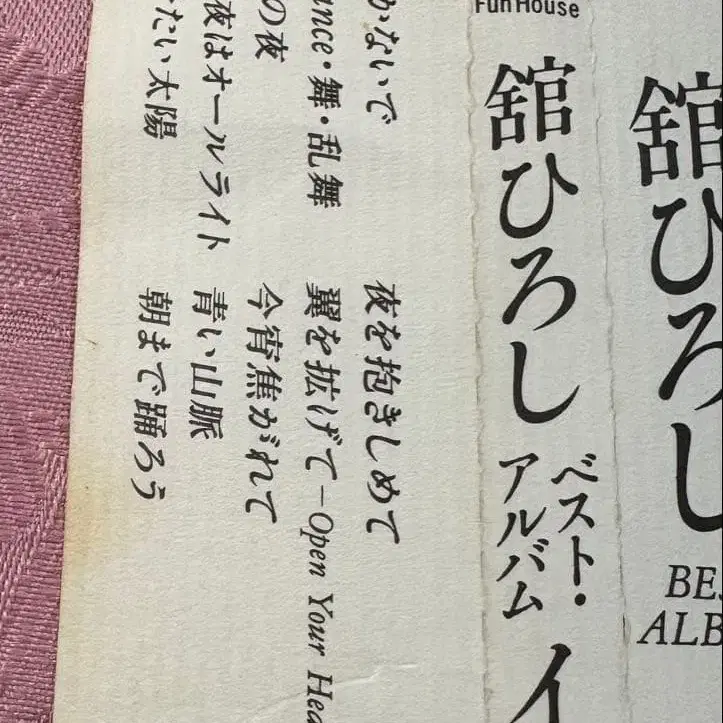 舘ひろし
BES
ALB
Fun House
舘ひろし
ベスト・
アルバム
イ
かないで
ance・舞・乱舞
の夜
夜はオールライト
たい太陽
夜を抱きしめて
翼を拡げて–Open Your Hea
今宵焦がれて
青い山脈
朝まで踊ろう